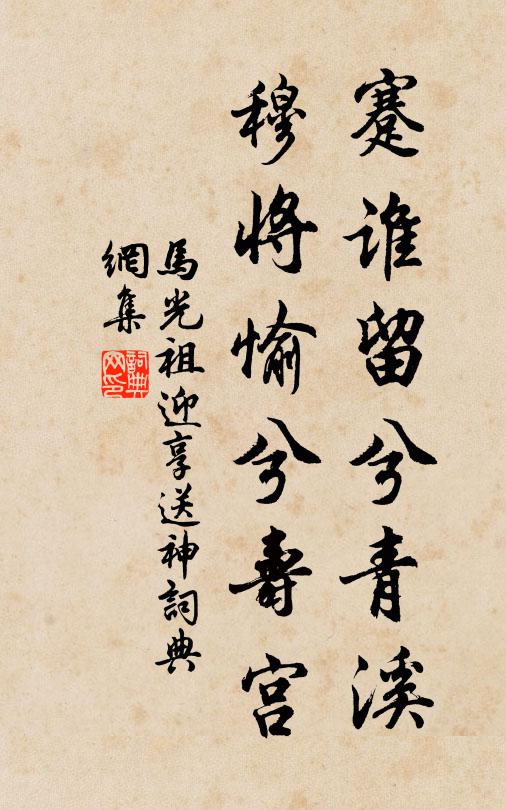 蹇誰留兮青溪
穆將愉兮壽宮
馬光祖迎享送神詞典
網集
詞典
网印